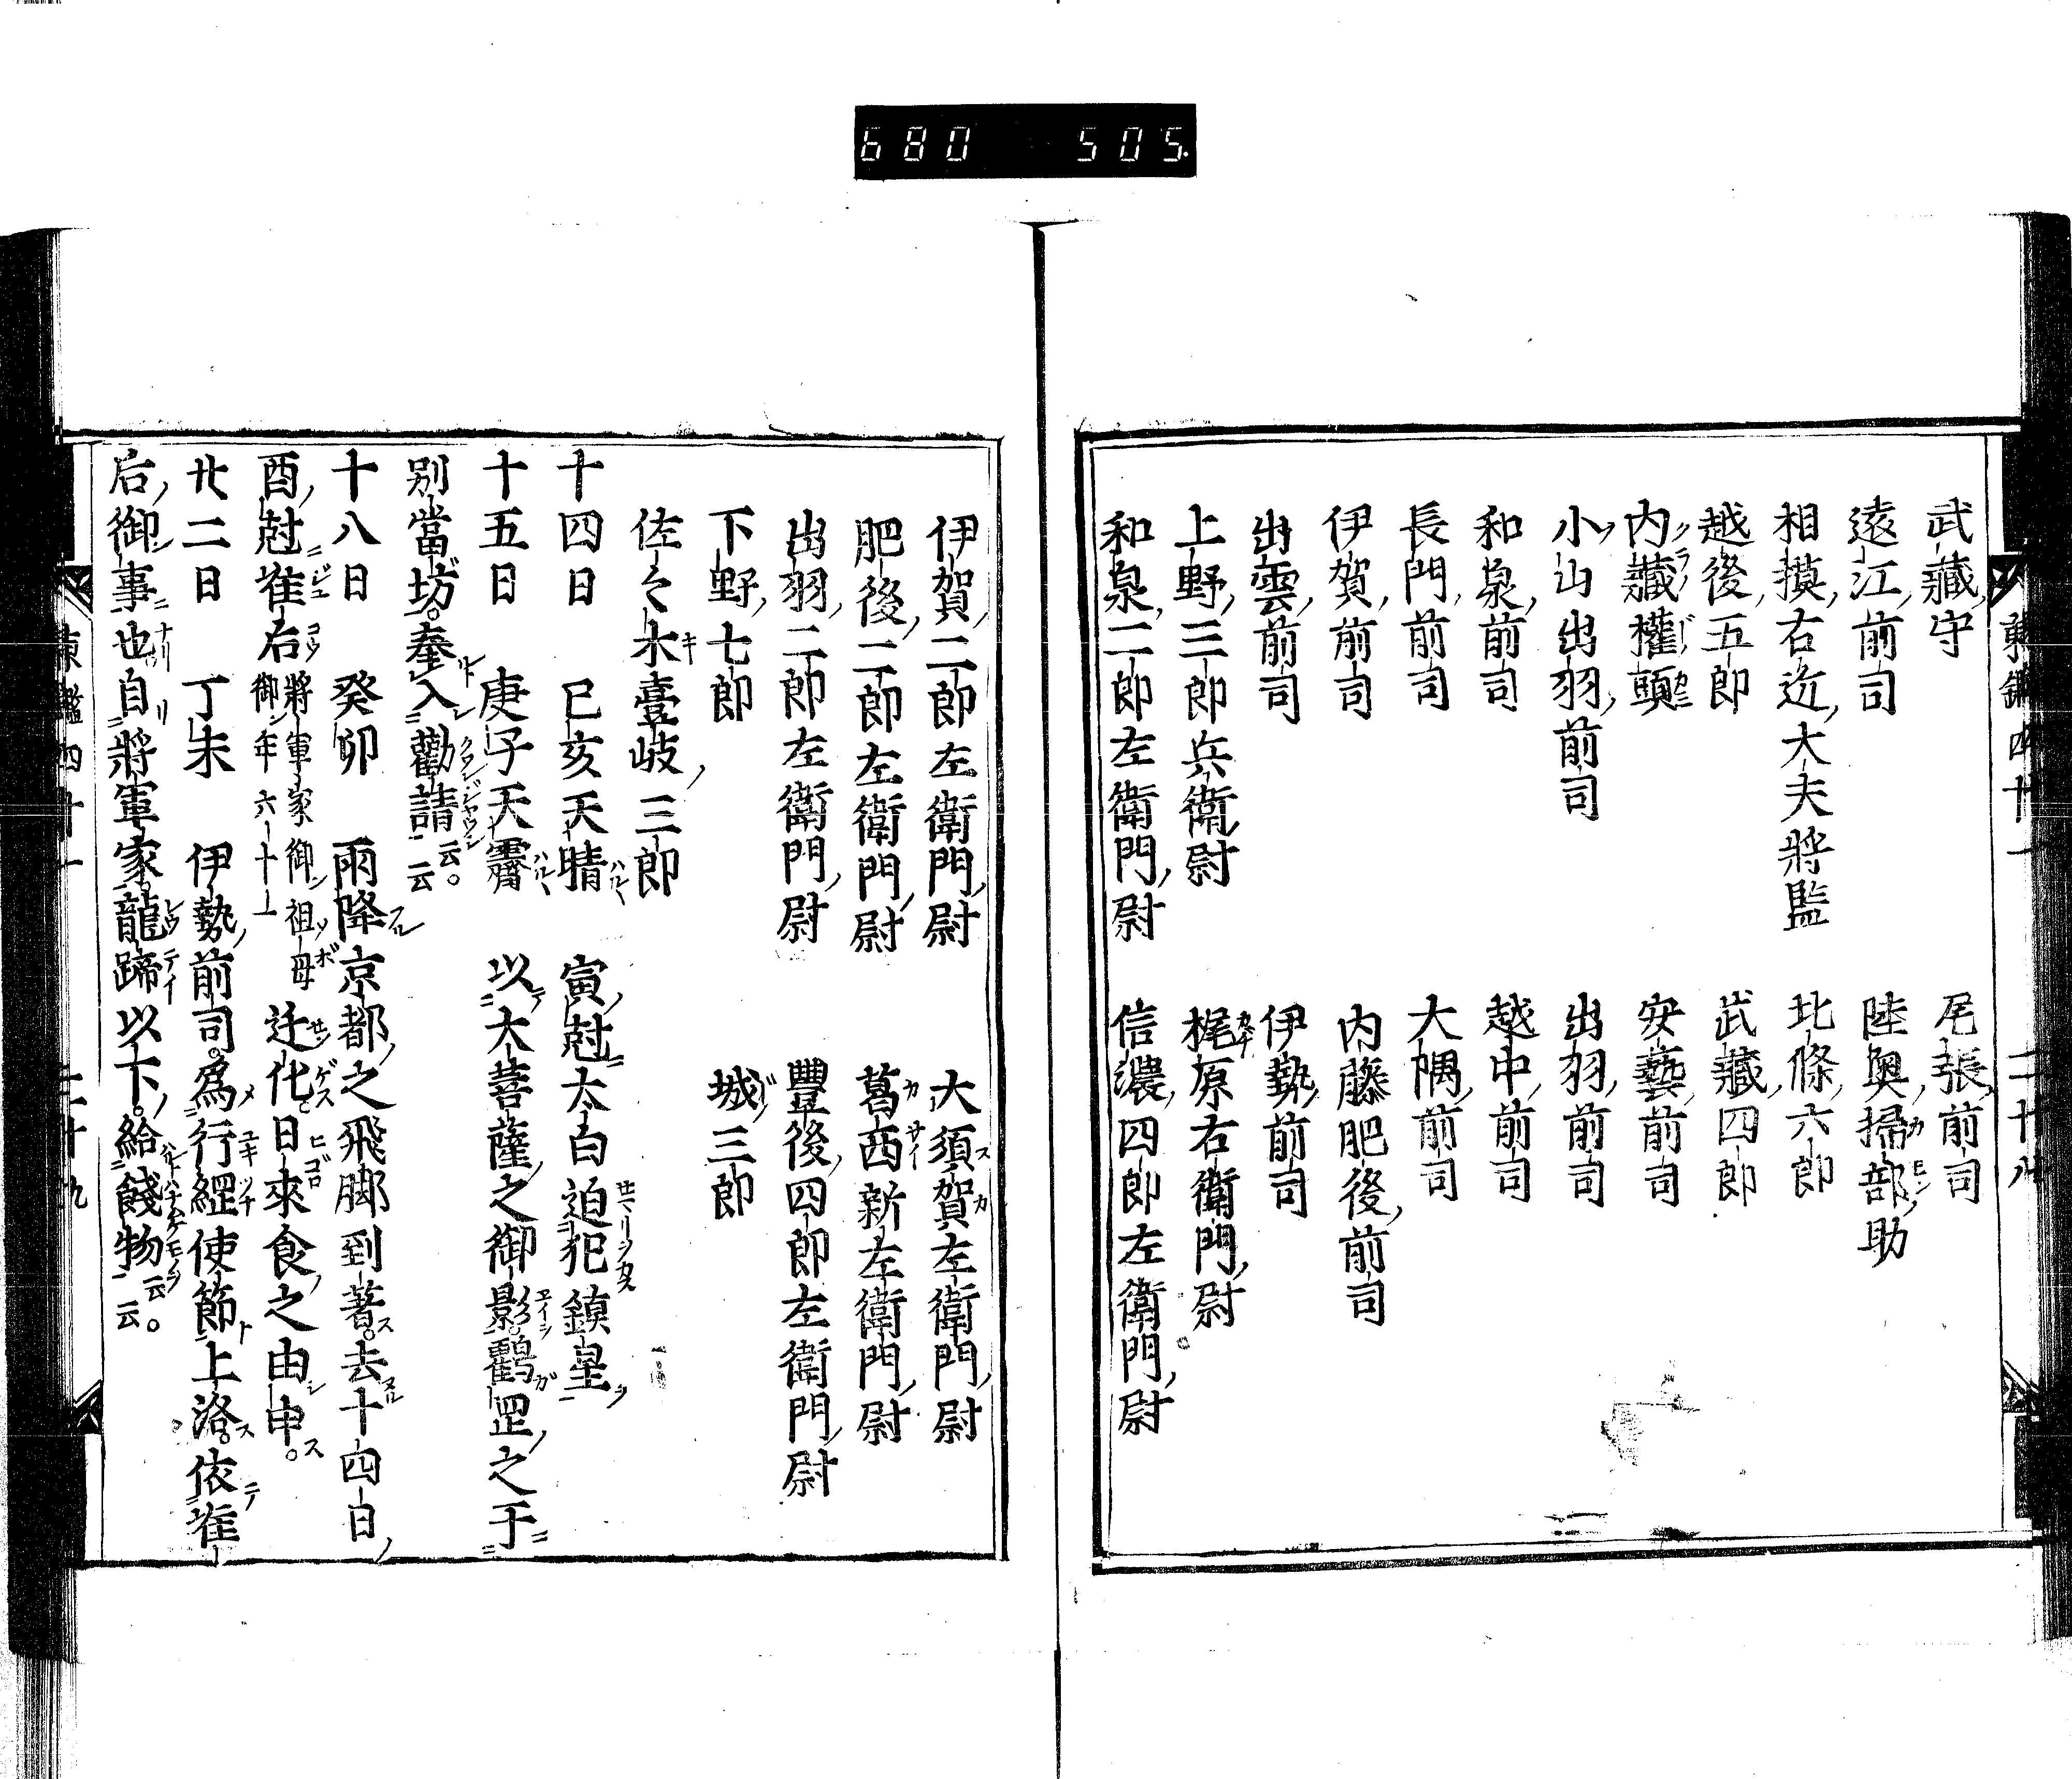 680 505
武藏守 尾張前司
遠江前司 陸奧掃部助
相摸右近大夫將監 北條六郎
越後五郎 武藏四郎
内藏權頭 安藝前司
小山出羽前司 出羽前司
和泉前司 越中前司
長門前司 大隅前司
伊賀前司 内藤肥後前司
出雲前司 伊勢前司
上野三郎兵衛尉 梶原右衛門尉
和泉二郎左衛門尉 信濃四郎左衛門尉
伊賀二郎左衛門尉 大須賀左衛門尉
肥後二郎左衛門尉 葛西新左衛門尉
出羽二郎左衛門尉 豐後四郎左衛門尉
下野七郎 城三郎
佐々木壹岐三郎
十四日 己亥天晴 寅尅太白迫犯鎮星
十五日 庚子天霽 以大菩薩之御影鸖罡之于
別當坊奉入勸請云云
十八日 癸卯 雨降京都之飛脚到著去十四日
酉尅准后將軍家御祖母御年六十一 迁化日來食之由申
廿二日 丁未 伊勢前司爲行經使節上洛依准
后御事也自將軍家龍蹄以下給餞物云云